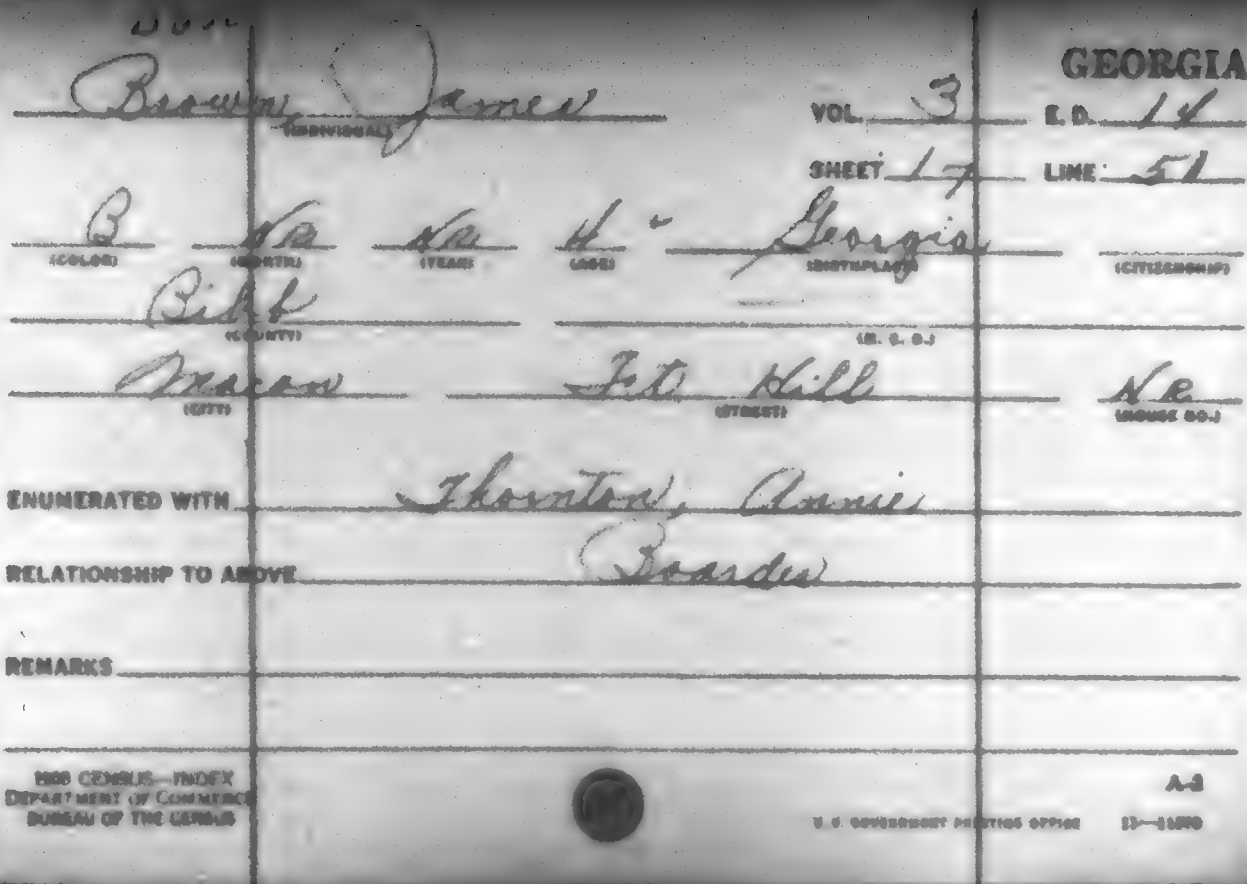 GEORGIA
Brown, James VOL. 3 E. D. 14
(INDIVIDUAL)
SHEET 17 LINE 51
B NR NR Georgia
(COLOR) (MONTH) (YEAR) (AGE) (BIRTHPLACE) (CITIZENSHIP)
Bibb
(COUNTY) (M. C. D.)
Macon Ft Hill NR
(CITY) (STREET) (HOUSE NO.)
ENUMERATED WITH Thornton, Annie
RELATIONSHIP TO ABOVE Boarder
REMARKS
CENSUS—INDEX
DEPARTMENT OF COMMERCE
BUREAU OF THE CENSUS
A-2
U. S. GOVERNMENT PRINTING OFFICE